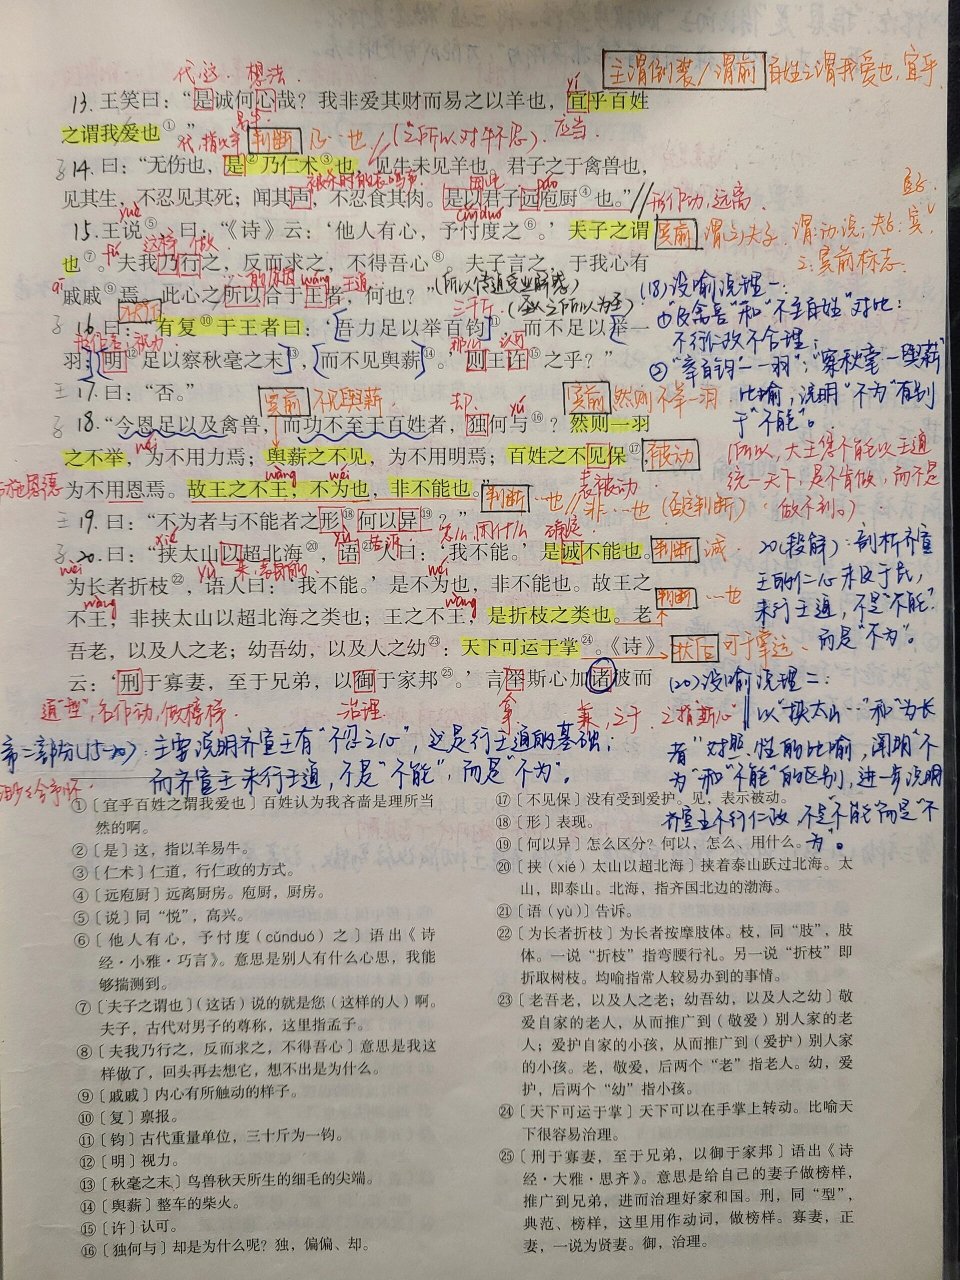 代.这. 想法.
主谓倒装/谓前 百姓之谓我爱也,宜乎
13. 王笑曰：“是诚何心哉？我非爱其财而易之以羊也，宜乎百姓
之谓我爱也①。”
代,指以羊易牛 判断 乃…也 (之所以对牛不忍) 应当
14. 曰：“无伤也，是②乃仁术③也，见牛未见羊也。君子之于禽兽也，
见其生，不忍见其死；闻其声，不忍食其肉。是以君子远庖厨④也。”
形作动,远离
15. 王说⑤曰：“《诗》云：‘他人有心，予忖度之⑥。’夫子之谓
宾前 谓之夫子. 谓:动,说;夫子:宾;
之:宾前标志.
也⑦。夫我乃行之，反而求之，不得吾心⑧。夫子言之，于我心有
戚戚⑨焉。此心之所以合于王者，何也？”
(所以传道受业解惑)
(圣人之所以为圣)
三十斤
16. 曰：“有复⑩于王者曰：‘吾力足以举百钧⑪，而不足以举一
羽；明⑫足以察秋毫之末⑬，而不见舆薪⑭。’则王许⑮之乎？”
17. 曰：“否。”
宾前 不见舆薪. 却 宾前 然则不举一羽
18. “今恩足以及禽兽，而功不至于百姓者，独何与⑯？然则一羽
之不举，为不用力焉；舆薪之不见，为不用明焉；百姓之不见保⑰，
被动
为不用恩焉。故王之不王，不为也，非不能也。”
判断 …也 / 非…也 (否定判断)
表被动
(所以,大王您不能以王道
统一天下,是不肯做,而不是
做不到。)
19. 曰：“不为者与不能者之形⑱何以异⑲？”
20. 曰：“挟太山以超北海⑳，语㉑人曰：‘我不能。’是诚不能也。
判断 诚
为长者折枝㉒，语人曰：‘我不能。’是不为也，非不能也。故王之
不王，非挟太山以超北海之类也；王之不王，是折枝之类也。老
判断 …也
吾老，以及人之老；幼吾幼，以及人之幼㉓：天下可运于掌㉔。《诗》
状后 可于掌运
云：‘刑于寡妻，至于兄弟，以御于家邦㉕。’言举斯心加诸彼而
通“型”,名作动,做榜样. 治理. 拿 兼,之于 之指“斯心”
(18)设喻说理一:
①“及禽兽”和“不至百姓”对比:
不行仁政不合理;
②“举百钧一一羽”;“察秋毫一舆薪”
比喻,说明“不为”有别
于“不能”。
20(段解):剖析齐宣
王的仁心未及于民,
未行王道,不是“不能”
而是“不为”。
(20)设喻说理二:
以“挟太山…”和“为长
者”对照性的比喻,阐明“不
为”和“不能”的区别,进一步说明
齐宣王不行仁政,不是“不能”而是“不
为”。
第二部分(15-20): 主要说明齐宣王有“不忍之心”,这是行王道的基础;
而齐宣王未行王道,不是“不能”,而是“不为”。
①〔宜乎百姓之谓我爱也〕百姓认为我吝啬是理所当
然的啊。
②〔是〕这，指以羊易牛。
③〔仁术〕仁道，行仁政的方式。
④〔远庖厨〕远离厨房。庖厨，厨房。
⑤〔说〕同“悦”，高兴。
⑥〔他人有心，予忖度（cǔnduó）之〕语出《诗
经·小雅·巧言》。意思是别人有什么心思，我能
够揣测到。
⑦〔夫子之谓也〕（这话）说的就是您（这样的人）啊。
夫子，古代对男子的尊称，这里指孟子。
⑧〔夫我乃行之，反而求之，不得吾心〕意思是我这
样做了，回头再去想它，想不出是为什么。
⑨〔戚戚〕内心有所触动的样子。
⑩〔复〕禀报。
⑪〔钧〕古代重量单位，三十斤为一钧。
⑫〔明〕视力。
⑬〔秋毫之末〕鸟兽秋天所生的细毛的尖端。
⑭〔舆薪〕整车的柴火。
⑮〔许〕认可。
⑯〔独何与〕却是为什么呢？独，偏偏、却。
⑰〔不见保〕没有受到爱护。见，表示被动。
⑱〔形〕表现。
⑲〔何以异〕怎么区分？何以，怎么、用什么。
⑳〔挟（xié）太山以超北海〕挟着泰山跃过北海。太
山，即泰山。北海，指齐国北边的渤海。
㉑〔语（yù）〕告诉。
㉒〔为长者折枝〕为长者按摩肢体。枝，同“肢”，肢
体。一说“折枝”指弯腰行礼。另一说“折枝”即
折取树枝。均喻指常人较易办到的事情。
㉓〔老吾老，以及人之老；幼吾幼，以及人之幼〕敬
爱自家的老人，从而推广到（敬爱）别人家的老
人；爱护自家的小孩，从而推广到（爱护）别人家
的小孩。老，敬爱，后两个“老”指老人。幼，爱
护，后两个“幼”指小孩。
㉔〔天下可运于掌〕天下可以在手掌上转动。比喻天
下很容易治理。
㉕〔刑于寡妻，至于兄弟，以御于家邦〕语出《诗
经·大雅·思齐》。意思是给自己的妻子做榜样，
推广到兄弟，进而治理好家和国。刑，同“型”，
典范、榜样，这里用作动词，做榜样。寡妻，正
妻，一说为贤妻。御，治理。